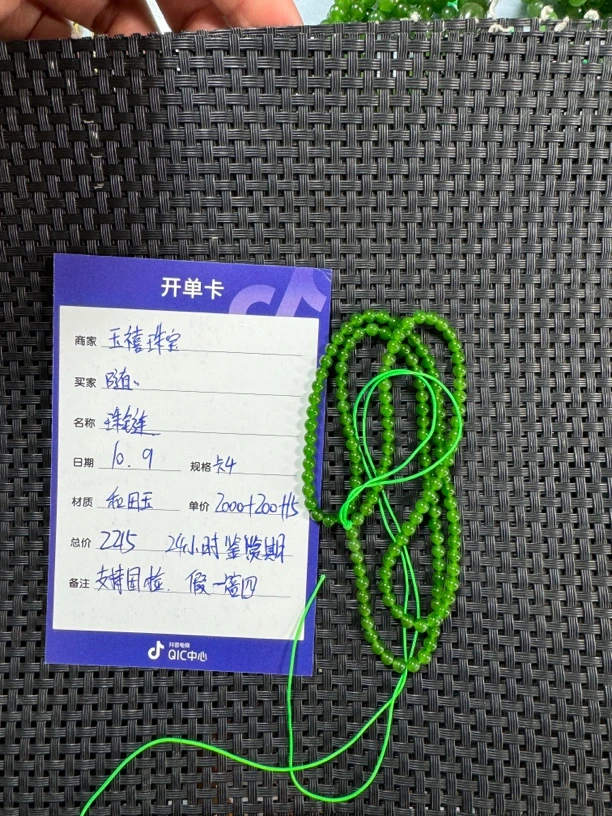 开单卡
商家 玉禧珠宝
买家 随、
名称 珠链
日期 10.9 规格 卡4
材质 和田玉 单价 2000+200+15
总价 2215 24小时鉴赏期
备注 支持国检. 假一赔四
抖音电商
QIC中心